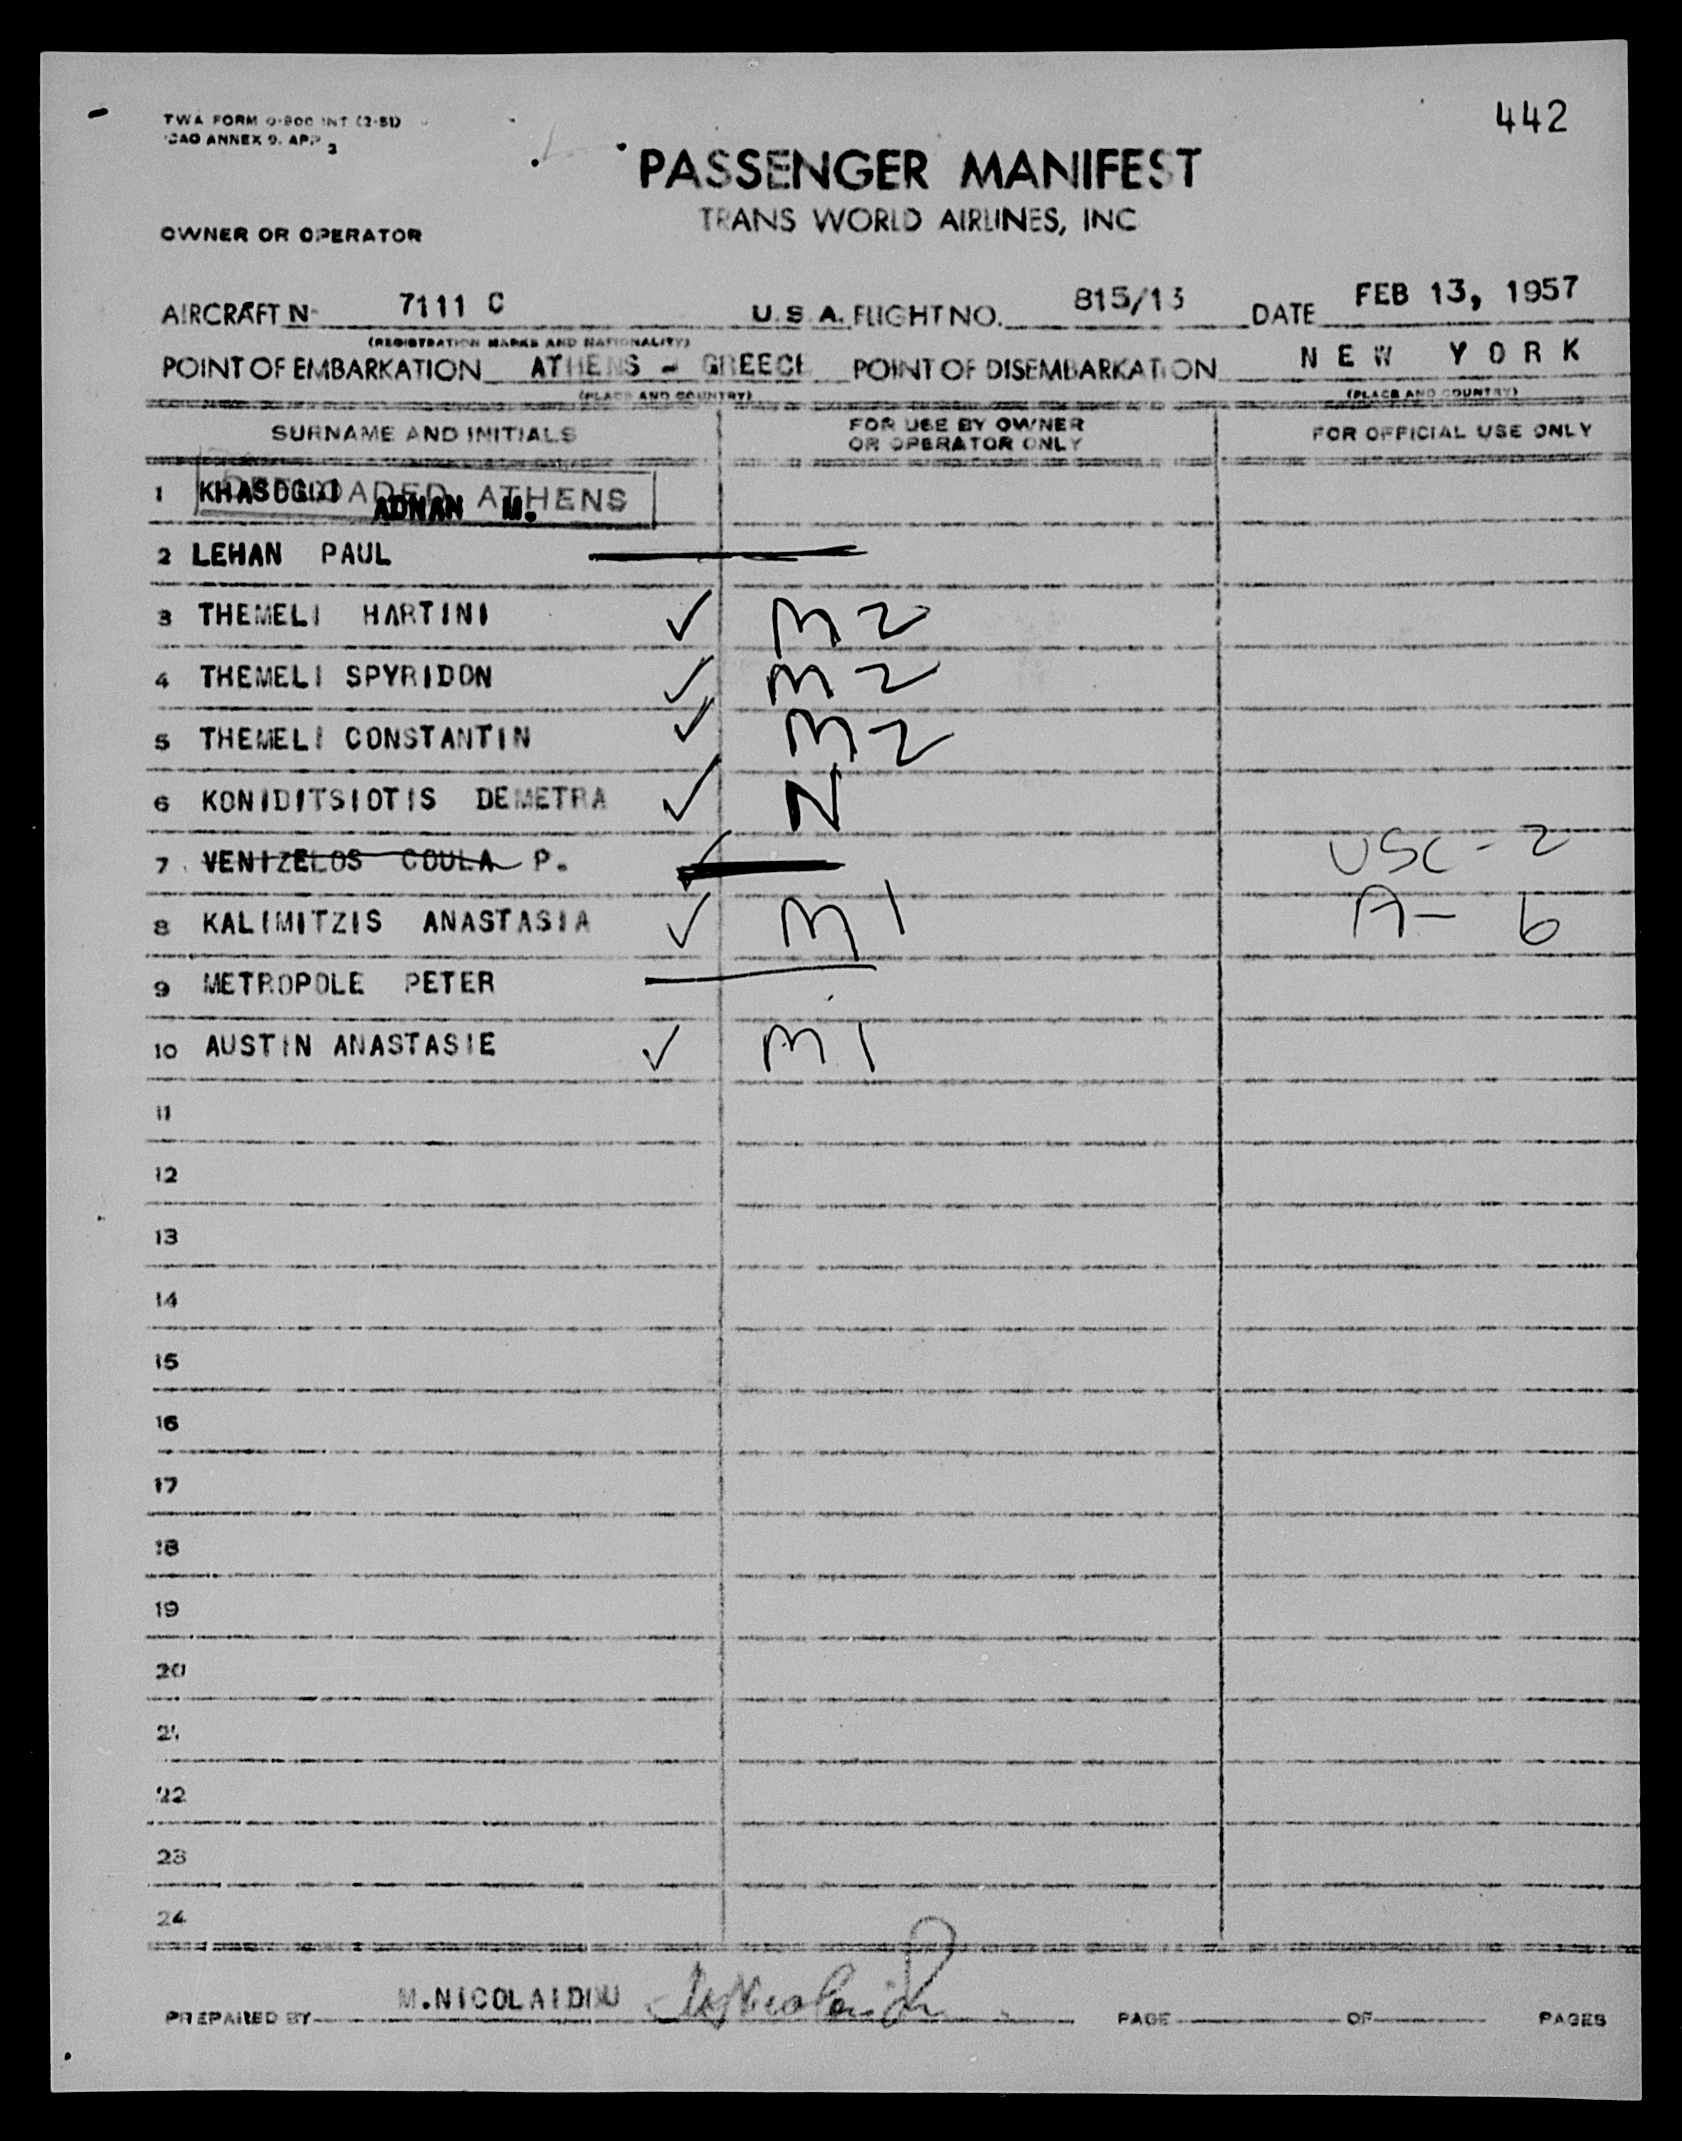 442
TWA FORM O-800 INT (2-51)
ICAO ANNEX 9. APP 3
PASSENGER MANIFEST
TRANS WORLD AIRLINES, INC
OWNER OR OPERATOR
AIRCRAFT N- 7111 C U.S.A. FLIGHT NO. 815/13 DATE FEB 13, 1957
(REGISTRATION MARKS AND NATIONALITY)
POINT OF EMBARKATION ATHENS - GREECE POINT OF DISEMBARKATION NEW YORK
(PLACE AND COUNTRY) (PLACE AND COUNTRY)
SURNAME AND INITIALS FOR USE BY OWNER OR OPERATOR ONLY FOR OFFICIAL USE ONLY
1 KHASOGGI ADNAN M. ATHENS
2 LEHAN PAUL
3 THEMELI HARTINI ✓ M 2
4 THEMELI SPYRIDON ✓ M 2
5 THEMELI CONSTANTIN ✓ M 2
6 KONIDITSIOTIS DEMETRA ✓ N
7 VENIZELOS COULA P. ✓ USC - 2
8 KALIMITZIS ANASTASIA ✓ M 1 A - 6
9 METROPOLE PETER
10 AUSTIN ANASTASIE ✓ M 1
11
12
13
14
15
16
17
18
19
20
21
22
23
24
PREPARED BY M.NICOLAIDOU PAGE OF PAGES